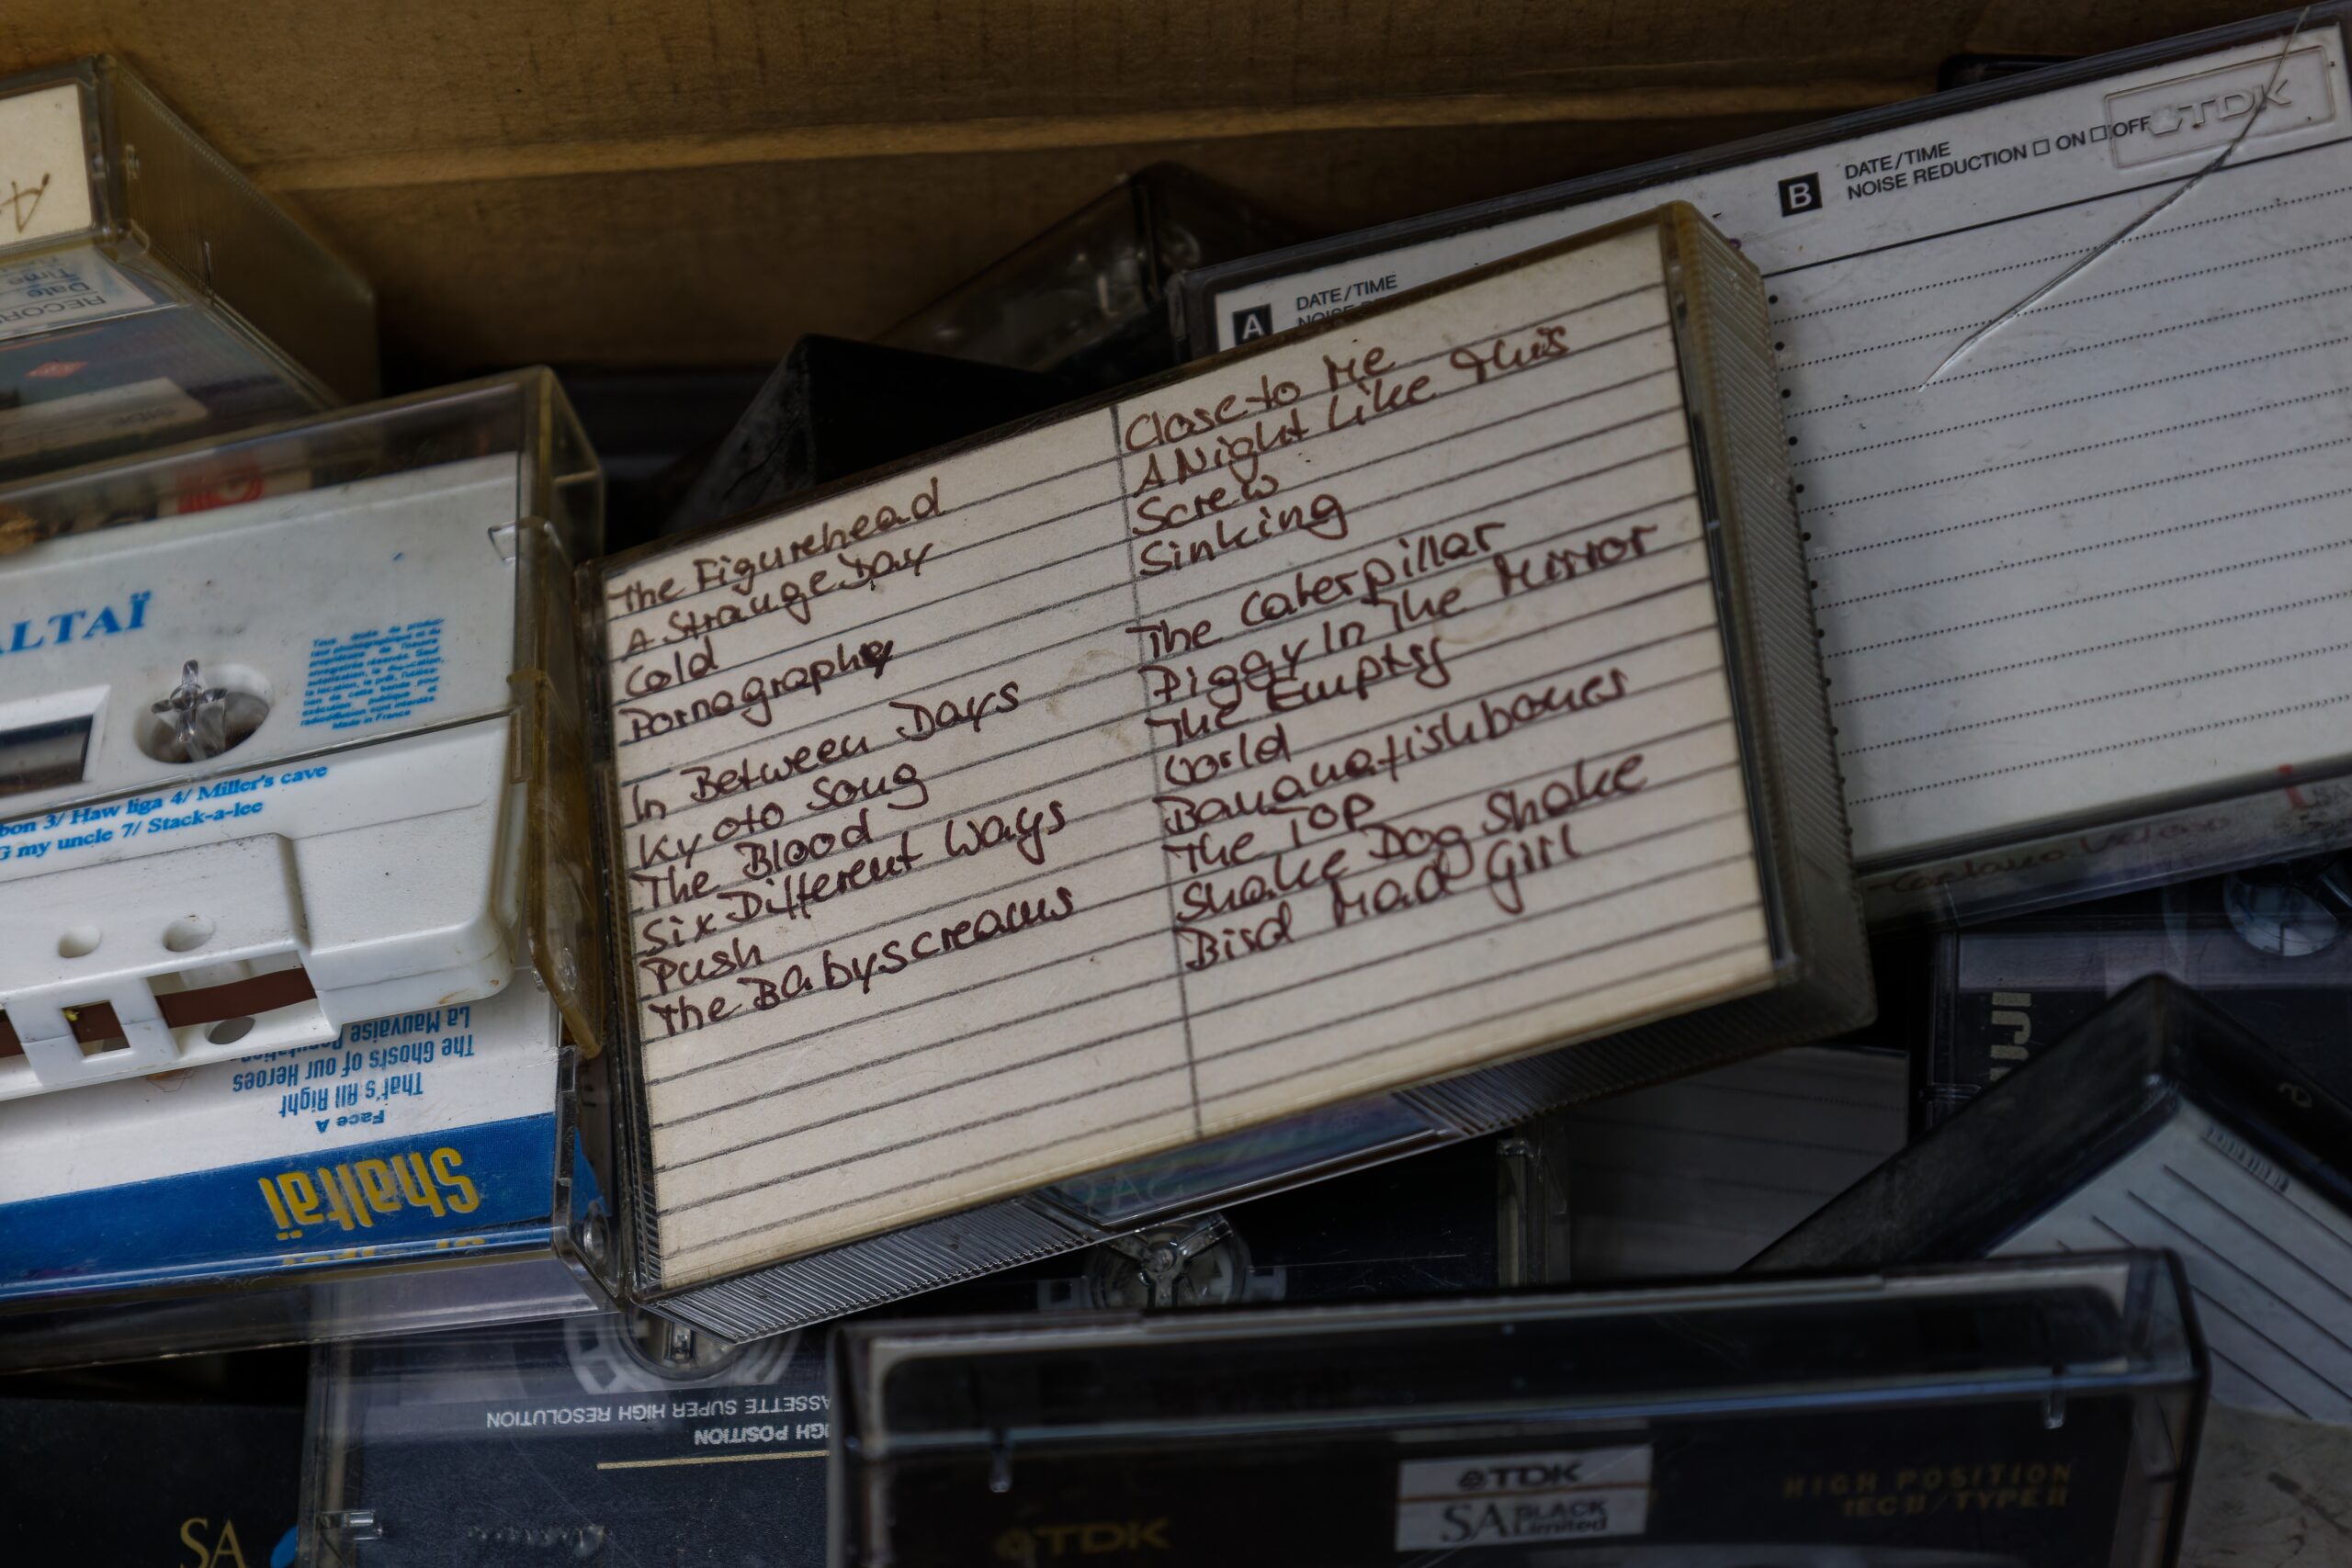 DATE/TIME
NOISE REDUCTION □ ON □ OFF
TDK
B
A
DATE/TIME
Date
Time
The Figurehead
A Strange Day
Cold
Pornography
In Between Days
Kyoto Song
The Blood
Six Different Ways
Push
The Babyscreams
Close to Me
A Night Like This
Screw
Sinking
The Caterpillar
Piggy In The Mirror
The Empty
World
Bananafishbones
The Top
Shake Dog Shake
Bird Mad Girl
Made in France
3/ Haw liga 4/ Miller's cave
my uncle 7/ Stack-a-lee
La Mauvaise
The Ghosts of our Heroes
That's All Right
Face A
Shaltaï
SUPER HIGH RESOLUTION
POSITION
SA
TDK
TDK
SA BLACK
Limited
HIGH POSITION
IECII/TYPEII